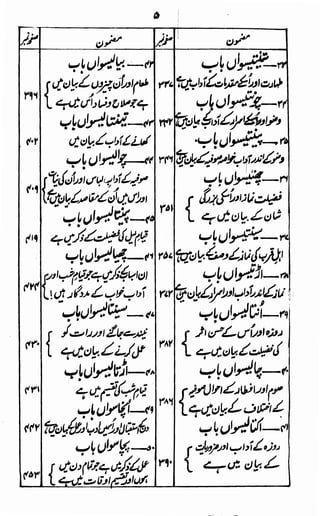 ۵
مضمون
صفحہ نمبر
۳۳ تینتیسواں باب
طہارت اور اسکے مقدمات کے آداب میں ہے
۳۳۷
۳۴ چونتیسواں باب
وضو اور اسکے اسرار کے آداب کے بیان میں ہے
۳۴۲
۳۵ پینتیسواں باب
وضو کے اندر آداب خواص صوفیہ کے بیان میں ہے
۳۴۶
۳۶ چھتیسواں باب
فضیلت نماز اور اسکی بزرگی
شان کے بیان میں ہے
۳۵۱
۳۷ سینتیسواں باب
اہل قرب کی نماز کے وصف کے بیان میں ہے
۳۵۷
۳۸ اڑتیسواں باب
نماز کے اندر آداب اور اسرار کے بیان میں ہے
۳۷۲
۳۹ انتالیسواں باب
روزہ اور اُس کے حسن اثر
کی فضیلت کے بیان میں ہے
۳۸۲
۴۰ چالیسواں باب
صوم اور افطار کے احوال صوفیہ
کے اختلاف کے بیان میں ہے
۳۸۶
۴۱ اکتالیسواں باب
روزہ کے آداب اور ضروریات
کے بیان میں ہے
۳۹۰
مضمون
صفحہ نمبر
۴۲ بیالیسواں باب
طعام اور اُن چیزوں کے بیان میں
ہے جو صلاح و فساد اُس میں ہے
۳۹۶
۴۳ تینتالیسواں باب
کھانے کے آداب کے بیان میں
۴۰۲
۴۴ چوالیسواں باب
صوفیہ کے آداب لباس اور اُن کی نیات
اور اس میں اُن کے مقاصد کے بیان میں ہے
۴۰۹
۴۵ پینتالیسواں باب
قیام لیل کی فضیلت کے ذکر میں ہے
۴۱۹
۴۶ چھیالیسواں باب
ان اسباب کے ذکر میں ہے جو قیام شب اور
آداب خواب کے مددگار ہیں
۴۲۴
۴۷ سینتالیسواں باب
نیند سے جاگنے اور رات کو
عمل کرنے کے بیان میں ہے
۴۳۰
۴۸ اڑتالیسواں باب
قیام شب کی تقسیم میں ہے
۴۳۹
۴۹ انچاسواں باب
دن کے استقبال اور اسمیں ادب اور عمل کے بیان میں ہے
۴۴۲
۵۰ پچاسواں باب
عمل کے ذکر میں ہے جو تمام دن میں
ہوں اور تقسیم اوقات میں ہے
۴۵۳